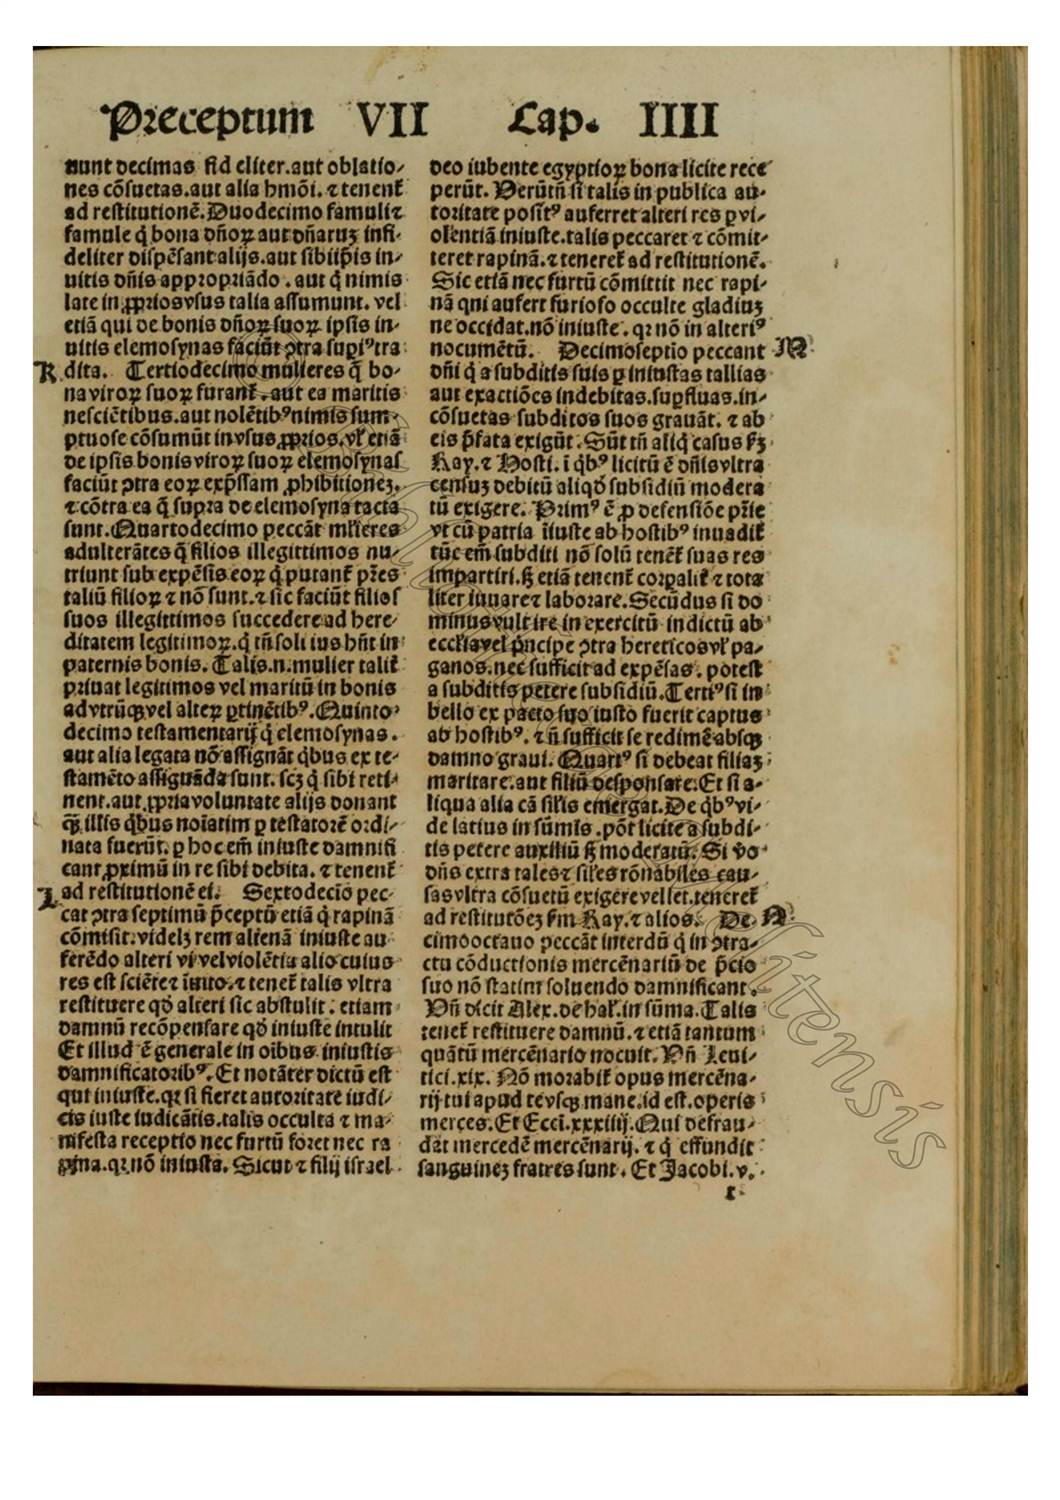 Preceptum VII Cap. IIII
nunt decimas fid eliter.aut oblatio⸗
nes cõsuetas.aut alia hmõi.⁊ tenent̃
ad restitutionẽ.Duodecimo famuli⁊
famule q̇ bona dñoꝝ aut dñaruꝫ infi⸗
deliter dispẽsant alijs.aut sibiip̃is in⸗
uitis dñis appropriãdo.aut q̇ nimis
late in ꝓpriosvsus talia assumunt.vel
etiã qui de bonis dñoꝝ suoꝝ ipsis in⸗
uitis elemosynas faciũt ꝯtra supiꝰ tra
K dita. Tertiodecimo mulieres q̇ bo⸗
na viroꝝ suoꝝ furant̃.aut ea maritis
nesciẽtibus.aut nolẽtibꝰ nimis sum⸗
ptuose cõsumũt in vsus ꝓprios.vl̃ etiã
de ipsis bonis viroꝝ suoꝝ elemosynas
faciũt ꝯtra eoꝝ exp̃ssam ꝓhibitioneꝫ.
⁊ cõtra ea q̇ supra de elemosyna tacta
sunt.Quartodecimo peccãt ml̃ieres
adulterãtes q̇ filios illegittimos nu⸗
triunt sub expẽsis eoꝝ q̇ putant̃ p̃res
taliũ filioꝝ ⁊ nõ sunt.⁊ sic faciũt filios
suos illegittimos succedere ad here⸗
ditatem legitimoꝝ.q̇ tñ soli ius hñt in
paternis bonis. Talis.n.mulier talit̃
priuat legitimos vel maritũ in bonis
ad vtrũqꝫ vel alteꝝ ꝑtinẽtibꝰ.Quinto⸗
decimo testamentarij q̇ elemosynas.
aut alia legata nõ assignãt q̇bus ex te⸗
stamẽto assignãda sunt.scꝫ q̇ sibi reti⸗
nent.aut ꝓpria voluntate alijs donant
qꝫ illis q̇bus noĩatim ꝑ testatorẽ ordi⸗
nata fuerũt.ꝑ hoc em̃ iniuste damnifi
cant ꝓximũ in re sibi debita.⁊ tenent̃
L ad restitutionẽ ei. Sextodecĩo pec⸗
cat ꝯtra septimũ p̃ceptũ etiã q̇ rapinã
cõmisit.videlꝫ rem alienã iniuste au⸗
ferẽdo alteri vi vel violẽtia alio cuius
res est sciẽte ⁊ ĩuito.⁊ tenet̃ talis vltra
restituere qḋ alteri sic abstulit.etiam
damnũ recõpensare qḋ iniuste intulit
Et illud ẽ generale in oĩbus iniustis
damnificatoribꝰ.Et notãter dictũ est
qui iniuste.qꝛ si fieret autoritate iudi⸗
cis iuste iudicãtis.talis occulta ⁊ ma⸗
nifesta receptio nec furtũ foret nec ra
pina.qꝛ nõ iniusta. Sicut ⁊ filij israel
deo iubente egyptioꝝ bona licite rece
perũt. Verũtñ si talis in publica au⸗
toritate positꝰ auferret alteri res ꝑ vi⸗
olentiã iniuste.talis peccaret ⁊ cõmit⸗
teret rapinã.⁊ teneret̃ ad restitutionẽ.
Sic etiã nec furtũ cõmittit nec rapi⸗
nã qui aufert furioso occulte gladiuꝫ
ne occidat.nõ iniuste.qꝛ nõ in alteriꝰ
nocumẽtũ. Decimoseptĩo peccant M
dñi q̇ a subditis suis ꝑ iniustas tallias
aut exactiões indebitas.suꝑfluas.in⸗
cõsuetas subditos suos grauãt.⁊ ab
eis p̃fata exigũt.Sũt tñ aliq̇ casus ẜꝫ
Ray.⁊ Hosti.ĩ q̇bꝰ licitũ ẽ dñis vltra
censuꝫ debitũ aliqḋ subsidiũ modera
tũ exigere. Primꝰ ẽ ꝓ defensiõe pr̃ie
vt cũ patria ĩiuste ab hostibꝰ inuadit̃
tũc em̃ subditi nõ solũ tenent̃ suas res
impartiri.ẜꝫ etiã tenent̃ corꝑalit̃ ⁊ tota
liter iuuare⁊ laborare.Secũdus si do
minus vult ire in exercitũ indictũ ab
eccl̃ia vel p̃ncipe ꝯtra hereticos vl̃ pa⸗
ganos.nec sufficit ad expẽsas.potest
a subditis petere subsidiũ.Tertiꝰ si in
bello ex pacto suo iusto fuerit captus
ab hostibꝰ.⁊ ñ sufficit se redimẽ absqꝫ
damno graui. Quartꝰ si debeat filiaꝫ
maritare.aut filiũ desponsare.Et si a⸗
liqua alia cã sil̃is emergat.De q̇bꝰ vi⸗
de latius in sũmis.põt licite a subdi⸗
tis petere auxiliũ ẜꝫ moderatũ. Si v̊o
dñs extra tales⁊ sil̃es rõnabiles cau⸗
sas vltra cõsuetũ exigere vellet.teneret̃
ad restitutõeꝫ ẜm Ray.⁊ alios. De⸗ N
cimooctauo peccãt interdũ q̇ in ꝯtra⸗
ctu cõductionis mercẽnariũ de p̃cio
suo nõ statim soluendo damnificant.
Vñ dicit Alex.de hal̃.in sũma.Talis
tenet̃ restituere damnũ.⁊ etiã tantum
quãtũ mercẽnario nocuit.Vñ Leui⸗
tici.xix. Nõ morabit̃ opus mercẽna⸗
rij tui apud te vsqꝫ mane.id est.operis
merces.Et Ecci.xxxiiij.Qui defrau⸗
dat mercedẽ mercẽnarij.⁊ q̇ effundit
sanguineꝫ fratres sunt. Et Jacobi.v.
r
itensis